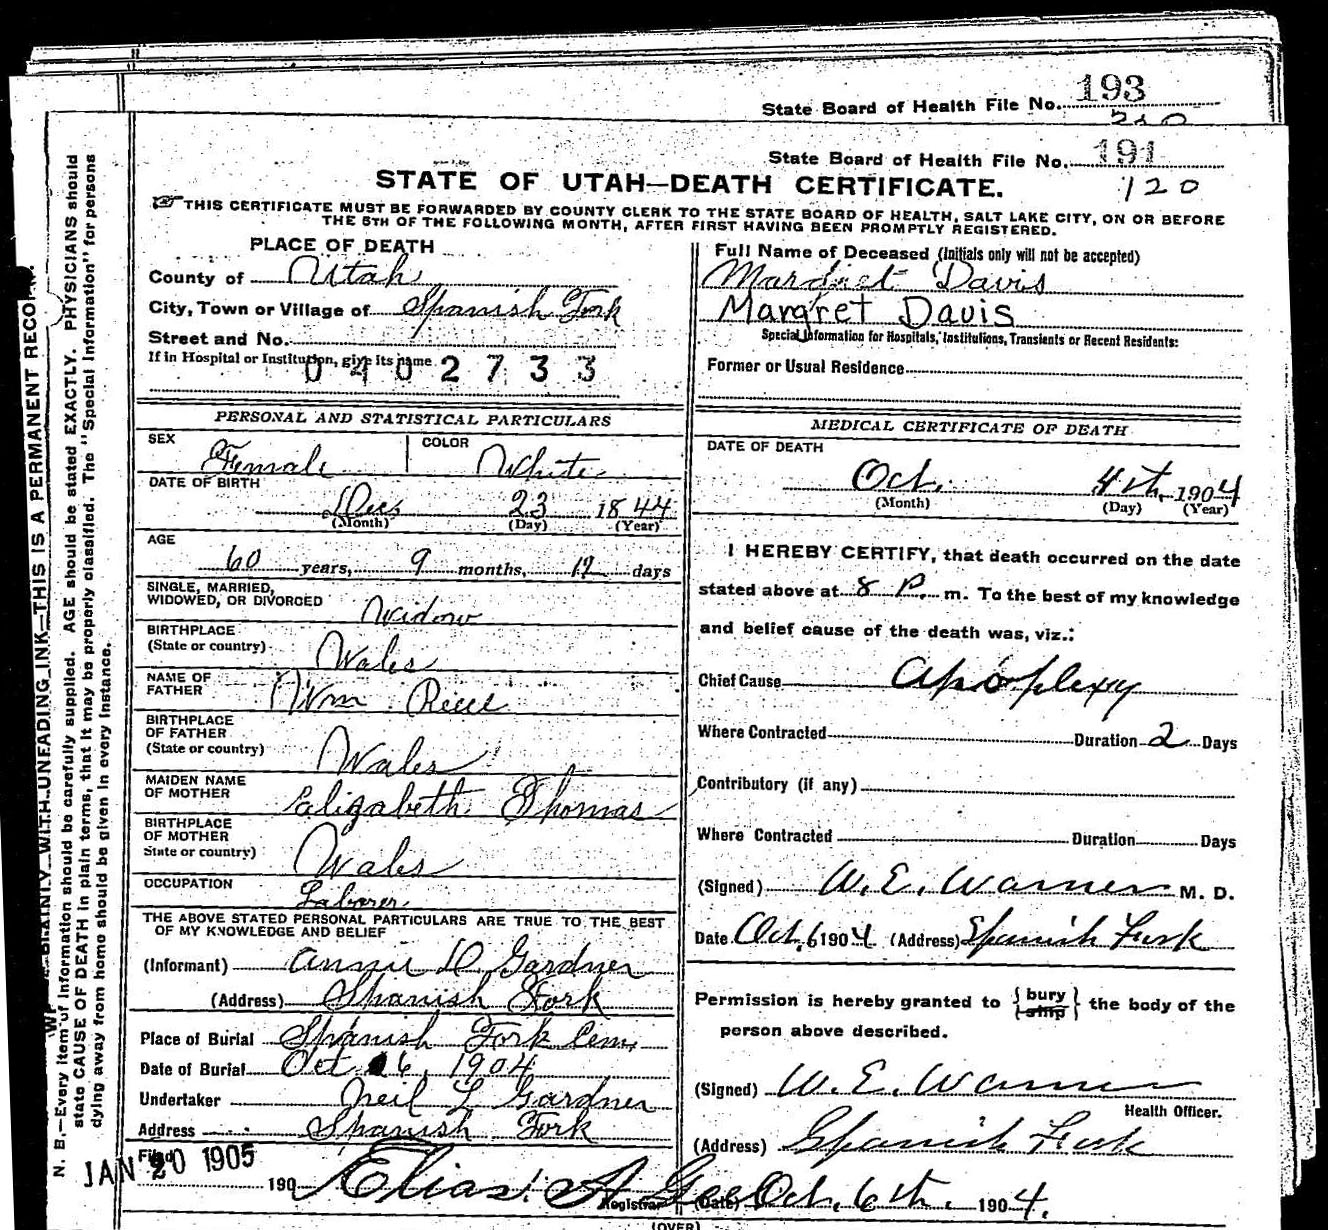 State Board of Health File No. 193
State Board of Health File No. 191
120
STATE OF UTAH—DEATH CERTIFICATE.
THIS CERTIFICATE MUST BE FORWARDED BY COUNTY CLERK TO THE STATE BOARD OF HEALTH, SALT LAKE CITY, ON OR BEFORE
THE 5TH OF THE FOLLOWING MONTH, AFTER FIRST HAVING BEEN PROMPTLY REGISTERED.
PLACE OF DEATH
County of Utah
City, Town or Village of Spanish Fork
Street and No.
If in Hospital or Institution, give its name
0402733
PERSONAL AND STATISTICAL PARTICULARS
SEX Female COLOR White
DATE OF BIRTH
Dec 23 1844
(Month) (Day) (Year)
AGE
60 years, 9 months, days
SINGLE, MARRIED,
WIDOWED, OR DIVORCED Widow
BIRTHPLACE
(State or country) Wales
NAME OF
FATHER Wm Reece
BIRTHPLACE
OF FATHER
(State or country) Wales
MAIDEN NAME
OF MOTHER Elizabeth Thomas
BIRTHPLACE
OF MOTHER
State or country) Wales
OCCUPATION Laborer
THE ABOVE STATED PERSONAL PARTICULARS ARE TRUE TO THE BEST
OF MY KNOWLEDGE AND BELIEF
(Informant) Annie D Gardner
(Address) Spanish Fork
Place of Burial Spanish Fork Cem.
Date of Burial Oct 6, 1904
Undertaker Neil L Gardner
Address Spanish Fork
Filed
JAN 20 1905
190 Elias A Gee
Registrar
Full Name of Deceased (Initials only will not be accepted)
Margret Davis
Margret Davis
Special Information for Hospitals, Institutions, Transients or Recent Residents:
Former or Usual Residence
MEDICAL CERTIFICATE OF DEATH
DATE OF DEATH
Oct. 4th 1904
(Month) (Day) (Year)
I HEREBY CERTIFY, that death occurred on the date
stated above at 8 P. m. To the best of my knowledge
and belief cause of the death was, viz.:
Chief Cause Apoplexy
Where Contracted Duration 2 Days
Contributory (if any)
Where Contracted Duration Days
(Signed) W. E. Warner M. D.
Date Oct. 6 1904 (Address) Spanish Fork
Permission is hereby granted to {bury ship} the body of the
person above described.
(Signed) W. E. Warner
Health Officer.
(Address) Spanish Fork
(Date) Oct. 6th. 1904.
(OVER)
WRITE PLAINLY WITH UNFADING INK—THIS IS A PERMANENT RECORD.
N. B.—Every item of information should be carefully supplied. AGE should be stated EXACTLY. PHYSICIANS should
state CAUSE OF DEATH in plain terms, that it may be properly classified. The "Special Information" for persons
dying away from home should be given in every instance.